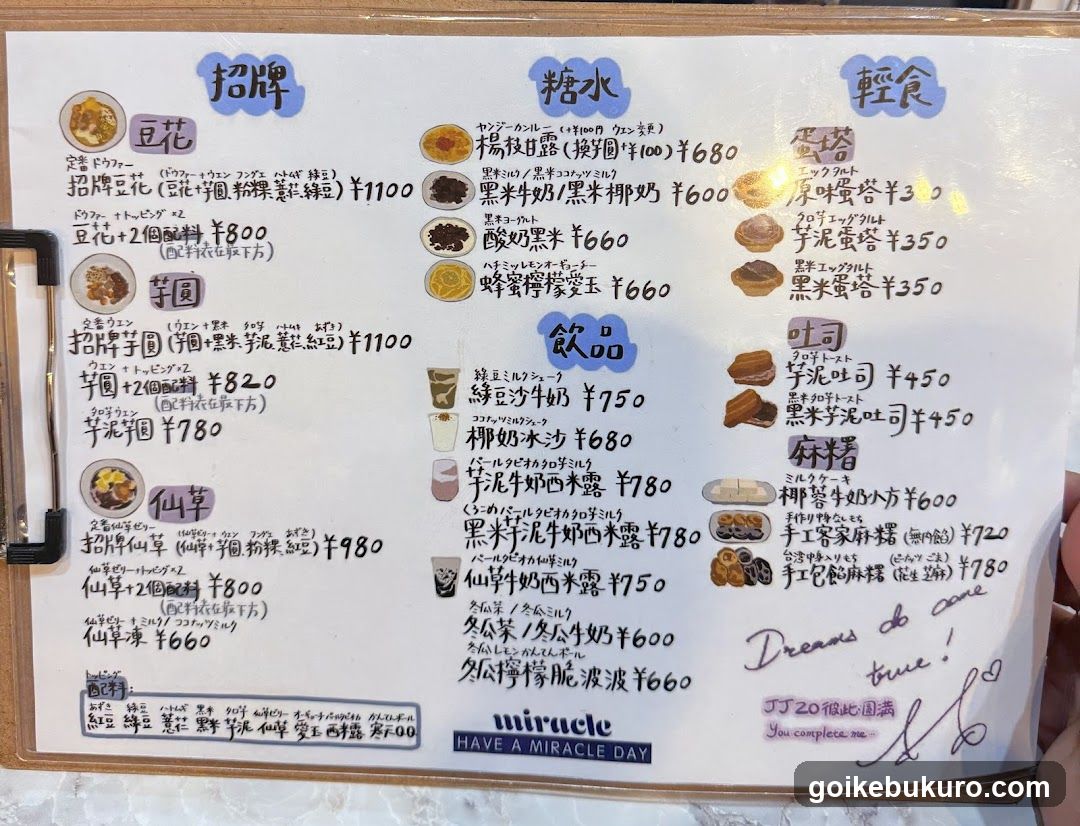 招牌
豆花
定番ドウファー (ドウファー+ウエン フングエ ハトムギ 緑豆)
招牌豆花(豆花+芋圓.粉粿.薏芢.綠豆)¥1100
ドウファー+トッピング×2
豆花+2個配料 ¥800
(配料表在最下方)
芋圓
定番ウエン (ウエン+黒米 タロ芋 ハトムギ あずき)
招牌芋圓(芋圓+黑米.芋泥.薏芢.紅豆)¥1100
ウエン+トッピング×2
芋圓+2個配料 ¥820
(配料表在最下方)
タロ芋ウエン
芋泥芋圓 ¥780
仙草
定番仙草ゼリー (仙草ゼリー+ウエン フングエ あずき)
招牌仙草(仙草+芋圓.粉粿.紅豆)¥980
仙草ゼリー+トッピング×2
仙草+2個配料 ¥800
(配料表在最下方)
仙草ゼリー+ミルク/ココナッツミルク
仙草凍 ¥660
トッピング
配料:
あずき 緑豆 ハトムギ 黒米 タロ芋 仙草ゼリー オーギョーチ パールタピオカ かんてんボール
紅豆 綠豆 薏芢 黑米 芋泥 仙草 愛玉 西米露 寒天QQ
糖水
ヤンジーカンルー (+¥100円 ウエン変更)
楊枝甘露(換芋圓+¥100)¥680
黒米ミルク/黒米ココナッツミルク
黑米牛奶/黑米椰奶 ¥600
黒米ヨーグルト
酸奶黑米 ¥660
ハチミツレモンオーギョーチー
蜂蜜檸檬愛玉 ¥660
飲品
緑豆ミルクシェーク
綠豆沙牛奶 ¥750
ココナッツミルクシェーク
椰奶冰沙 ¥680
パールタピオカタロ芋ミルク
芋泥牛奶西米露 ¥780
くろごめパールタピオカタロ芋ミルク
黑米芋泥牛奶西米露¥780
パールタピオカ仙草ミルク
仙草牛奶西米露 ¥750
冬瓜茶/冬瓜ミルク
冬瓜茶/冬瓜牛奶¥600
冬瓜レモンかんてんボール
冬瓜檸檬脆波波¥660
miracle
HAVE A MIRACLE DAY
輕食
蛋塔
エッグタルト
原味蛋塔
タロ芋エッグタルト
芋泥蛋塔¥350
黒米エッグタルト
黑米蛋塔¥350
吐司
タロ芋トースト
芋泥吐司 ¥450
黒米タロ芋トースト
黑米芋泥吐司¥450
麻糬
ミルクケーキ
椰蓉牛奶小方¥600
手作り中身なしもち
手工客家麻糬(無內餡)¥720
台湾中身入りもち (ピーナッツ ごま)
手工包餡麻糬(花生 芝麻)¥780
Dreams do come
true!
JJ20彼此圓滿
You complete me...
goikebukuro.com